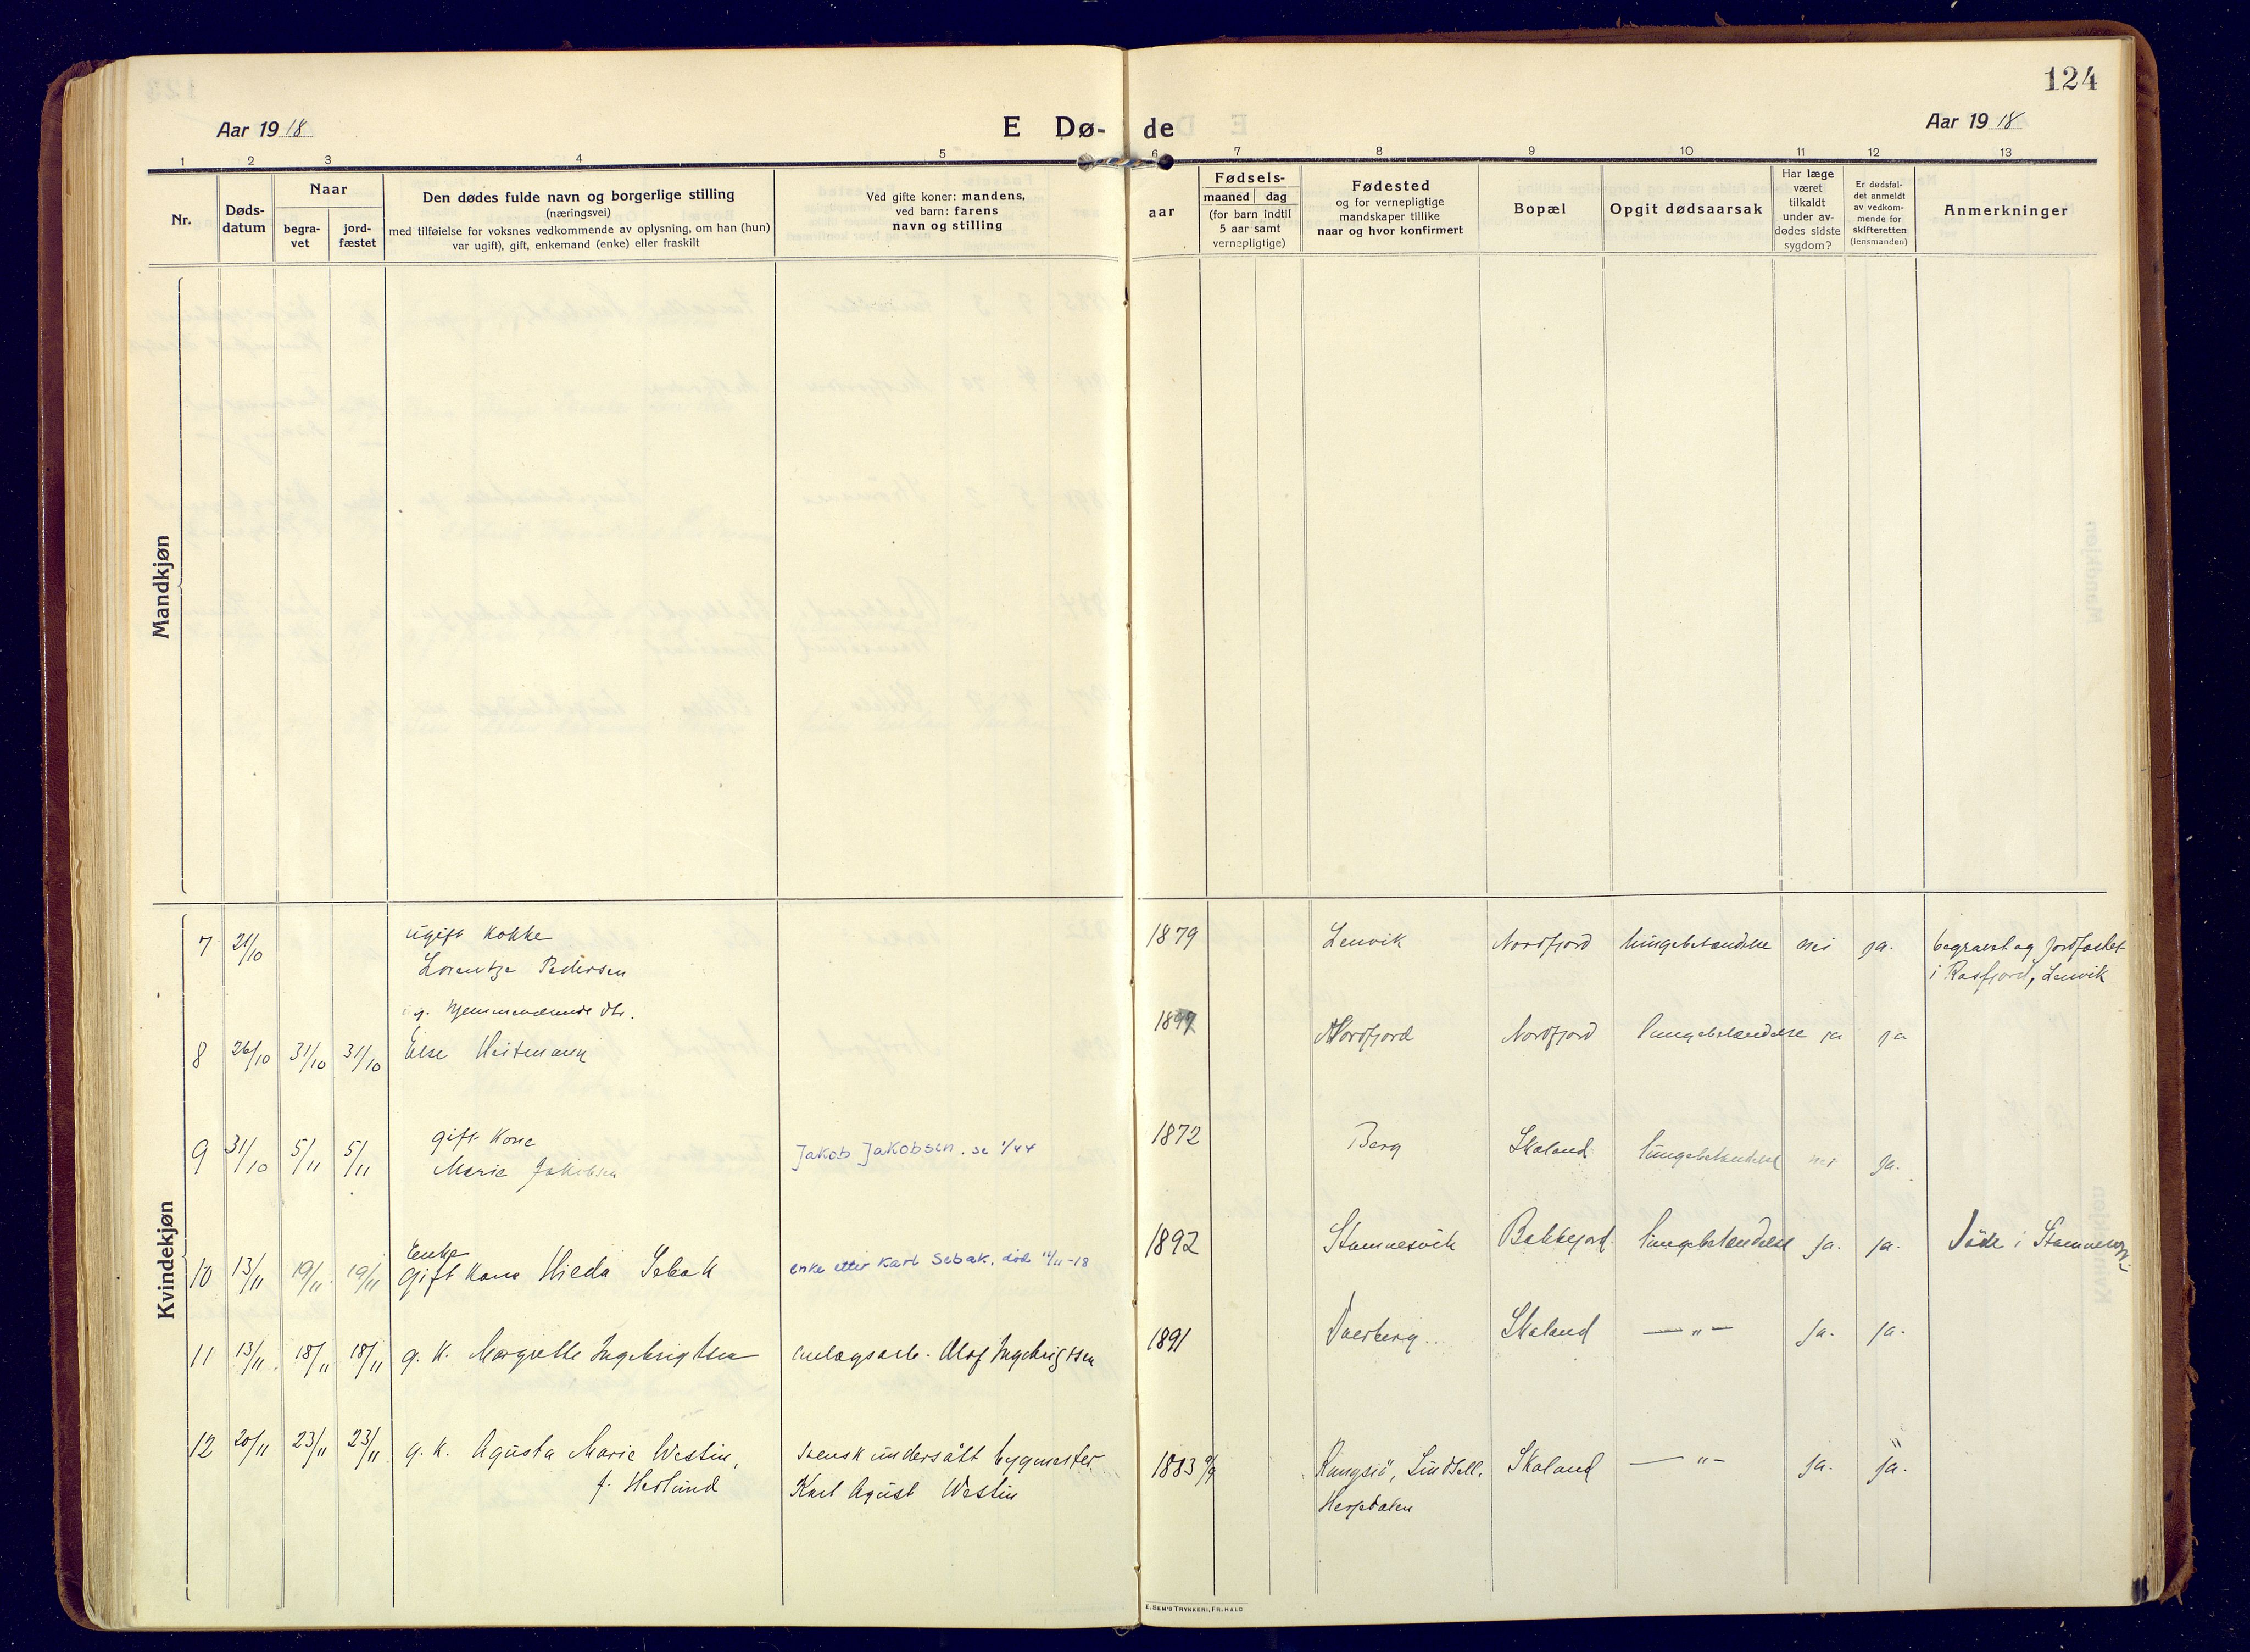 124
Aar 19 18
E Dø- de
Aar 19 18
1 2 3 4 5 6 7 8 9 10 11 12 13
Nr.
Døds-
datum
Naar
begra-
vet
jord-
fæstet
Den dødes fulde navn og borgerlige stilling
(næringsvei)
med tilføielse for voksnes vedkommende av oplysning, om han (hun)
var ugift), gift, enkemand (enke) eller fraskilt
Ved gifte koner: mandens,
ved barn: farens
navn og stilling
aar
Fødsels-
maaned dag
(for barn indtil
5 aar samt
vernepligtige)
Fødested
og for vernepligtige
mandskaper tillike
naar og hvor konfirmert
Bopæl
Opgit dødsaarsak
Har læge
været
tilkaldt
under av-
dødes sidste
sygdom?
Er dødsfal-
det anmeldt
av vedkom-
mende for
skifteretten
(lensmanden)
Anmerkninger
Mandkjøn
Kvindekjøn
ugift kokke
7 21/10 Lorentze Pedersen 1879 Lenvik Nordfjord lungebetændelse nei ja. begravet og jordfæstet
i Rosfjord, Lenvik
ug. hjemmeværende dtr.
8 26/10 31/10 31/10 Else Heitmann 1897 Nordfjord Nordfjord lungebetændelse ja ja
gift kone
9 31/10 5/11 5/11 Marie Jakobsen Jakob Jakobsen. se 1/44 1872 Berg Skaland lungebetændelse nei ja.
Enke
10 13/11 19/11 19/11 gift kone Hilda Sebak enke etter Karl Sebak, død 12/11-18 1892 Stamnesvik Bakkejord lungebetændelse ja. ja. Døde i Stamnesvik
11 13/11 18/11 18/11 g. k. Margrethe Ingebrigtsen anlægsarb. Olaf Ingebrigtsen 1891 Dverberg Skaland —"— ja. ja.
12 20/11 23/11 23/11 g. k. Agusta Marie Westin, svensk undersått bygmester 1883 9/9 Skaland —"— ja. ja.
f. Hedlund Karl Agust Westin Herjedalen
E. SEM'S TRYKKERI, FR. HALD